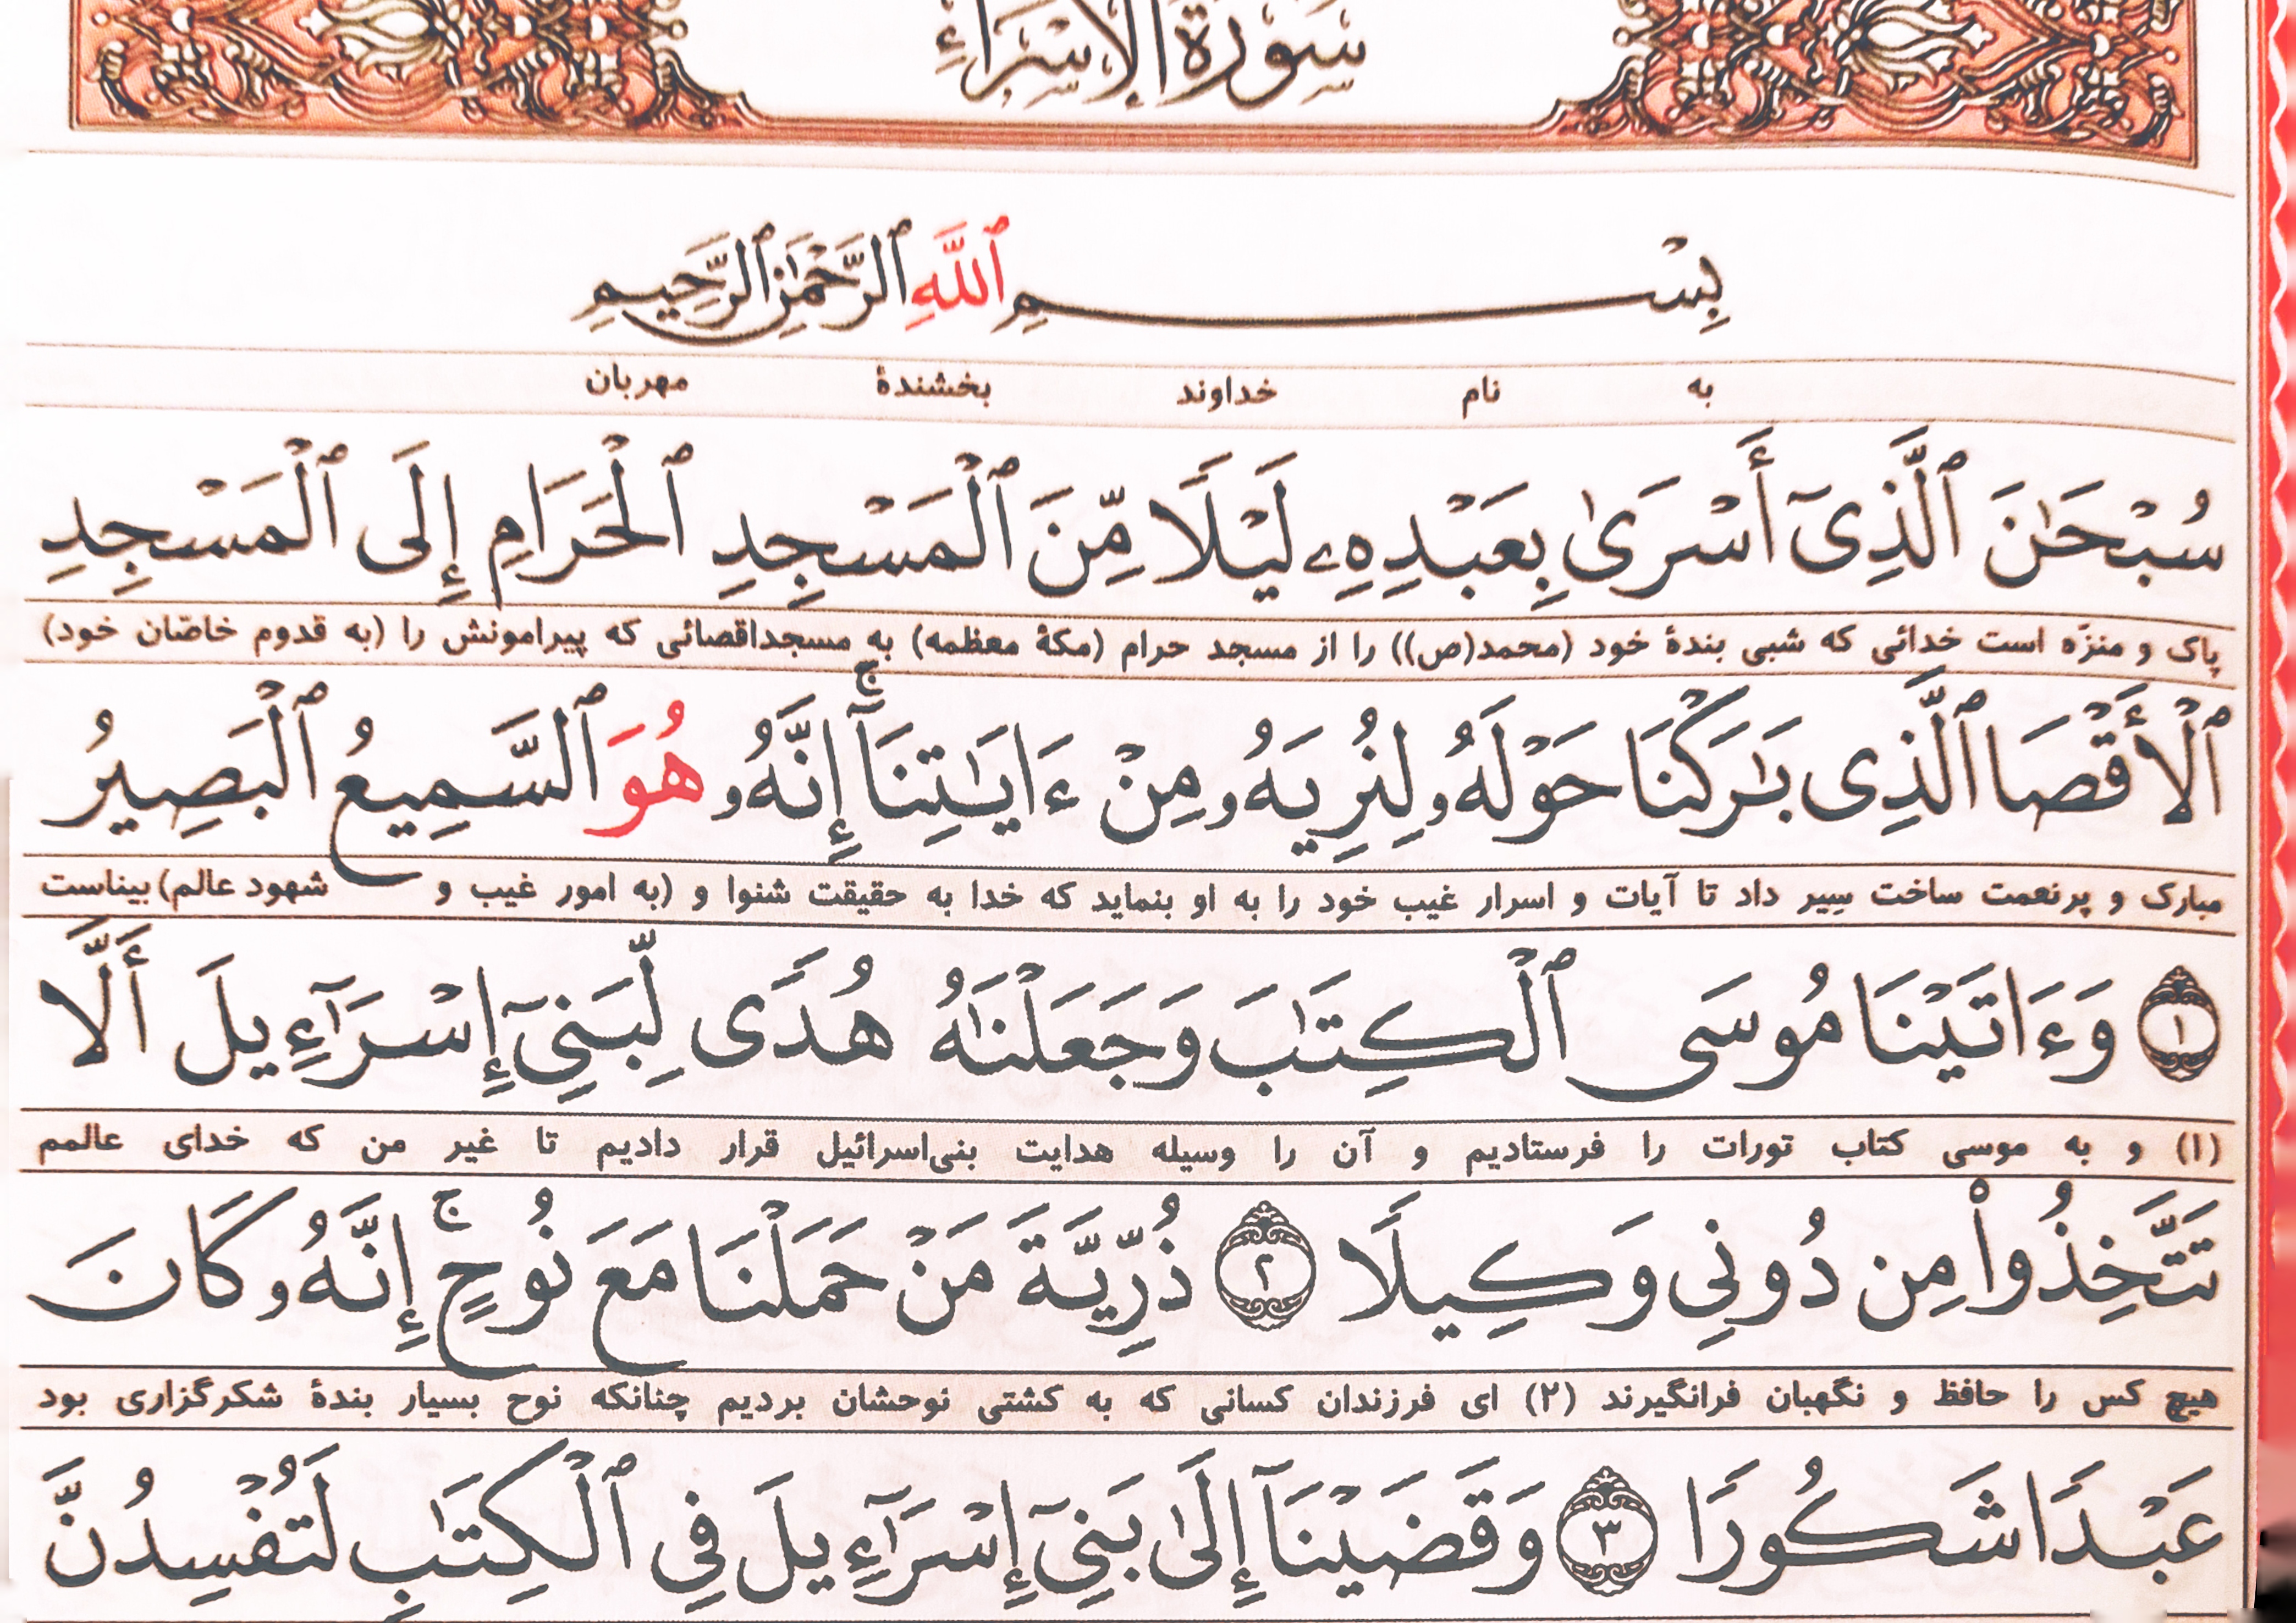 سُورَةُ الإِسْرَاءِ
بِسْمِ ٱللَّهِ ٱلرَّحْمَٰنِ ٱلرَّحِيمِ
به نام خداوند بخشندهٔ مهربان
سُبْحَٰنَ ٱلَّذِىٓ أَسْرَىٰ بِعَبْدِهِۦ لَيْلًا مِّنَ ٱلْمَسْجِدِ ٱلْحَرَامِ إِلَى ٱلْمَسْجِدِ
پاک و منزّه است خدائی که شبی بندهٔ خود (محمد(ص)) را از مسجد حرام (مکهٔ معظمه) به مسجداقصائی که پیرامونش را (به قدوم خاصّان خود)
ٱلْأَقْصَا ٱلَّذِى بَٰرَكْنَا حَوْلَهُۥ لِنُرِيَهُۥ مِنْ ءَايَٰتِنَآ ۚ إِنَّهُۥ هُوَ ٱلسَّمِيعُ ٱلْبَصِيرُ
مبارک و پرنعمت ساخت سِیر داد تا آیات و اسرار غیب خود را به او بنماید که خدا به حقیقت شنوا و (به امور غیب و شهود عالم) بیناست
۱ وَءَاتَيْنَا مُوسَى ٱلْكِتَٰبَ وَجَعَلْنَٰهُ هُدًى لِّبَنِىٓ إِسْرَٰٓءِيلَ أَلَّا
(۱) و به موسی کتاب تورات را فرستادیم و آن را وسیله هدایت بنی‌اسرائیل قرار دادیم تا غیر من که خدای عالمم
تَتَّخِذُوا۟ مِن دُونِى وَكِيلًا ۲ ذُرِّيَّةَ مَنْ حَمَلْنَا مَعَ نُوحٍ ۚ إِنَّهُۥ كَانَ
هیچ کس را حافظ و نگهبان فرانگیرند (۲) ای فرزندان کسانی که به کشتی نوحشان بردیم چنانکه نوح بسیار بندهٔ شکرگزاری بود
عَبْدًا شَكُورًا ۳ وَقَضَيْنَآ إِلَىٰ بَنِىٓ إِسْرَٰٓءِيلَ فِى ٱلْكِتَٰبِ لَتُفْسِدُنَّ